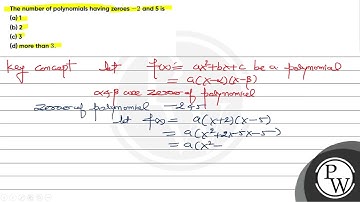 The number of polynomials having zeroes −2 and 5 is
(a) 1
(b) 2
(c) 3
(d) more than 3.
Key concept let f(x) = ax²+bx+c be a polynomial
= a(x-α)(x-β)
α & β are zeroes of polynomial
zeroes of polynomial -2 & 5
let f(x) = a(x+2)(x-5)
= a(x²+2x-5x-5)
= a(x²-
PW